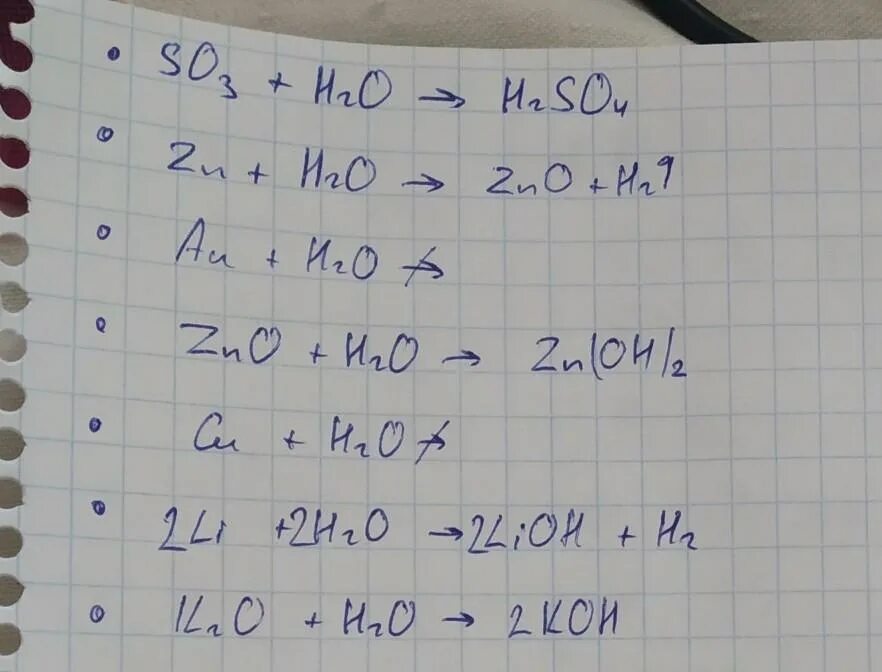 • SO₃ + H₂O → H₂SO₄
• Zn + H₂O → ZnO + H₂↑
• Au + H₂O ↛
• ZnO + H₂O → Zn(OH)₂
• Cu + H₂O ↛
• 2Li + 2H₂O → 2LiOH + H₂
• K₂O + H₂O → 2KOH